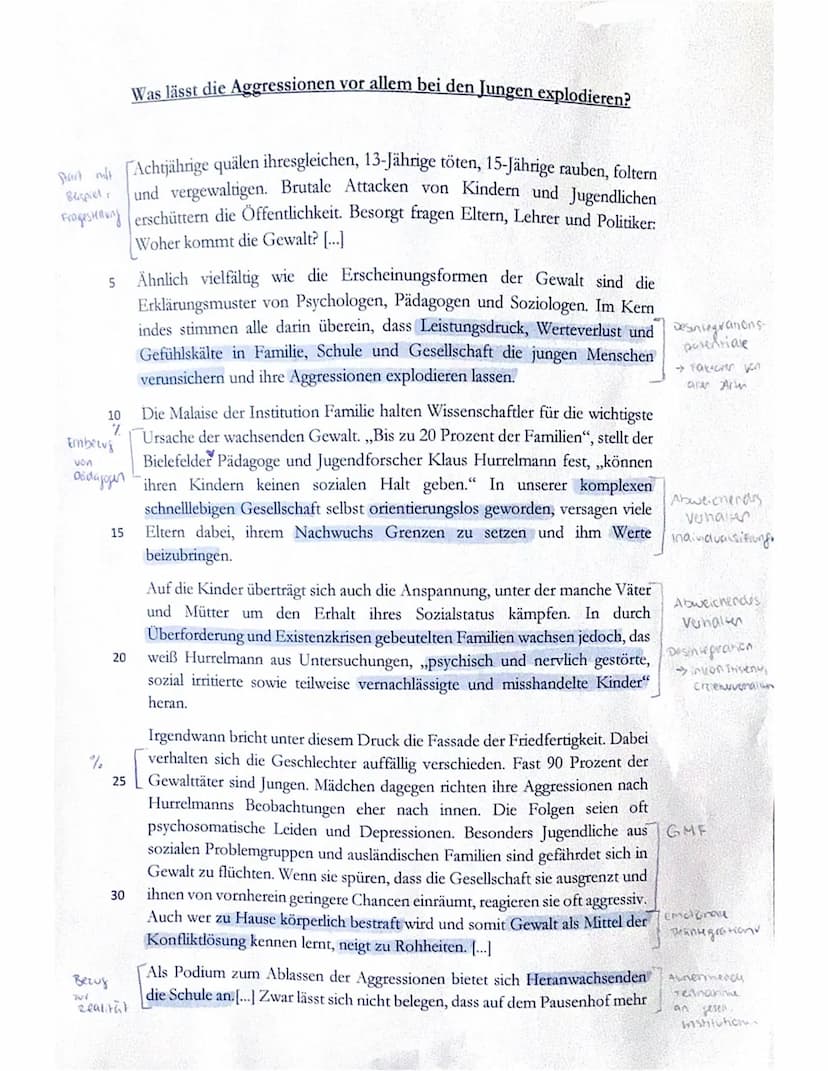 Was lässt die Aggressionen vor allem bei den Jungen explodieren?
Start mit
Beispiel +
Fragestellung
Achtjährige quälen ihresgleichen, 13-Jährige töten, 15-Jährige rauben, foltern
und vergewaltigen. Brutale Attacken von Kindern und Jugendlichen
erschüttern die Öffentlichkeit. Besorgt fragen Eltern, Lehrer und Politiker:
Woher kommt die Gewalt? [...]
5 Ähnlich vielfältig wie die Erscheinungsformen der Gewalt sind die
Erklärungsmuster von Psychologen, Pädagogen und Soziologen. Im Kern
indes stimmen alle darin überein, dass Leistungsdruck, Werteverlust und
Gefühlskälte in Familie, Schule und Gesellschaft die jungen Menschen
verunsichern und ihre Aggressionen explodieren lassen.
Desintegrations-
potentiale
→ Faktoren von
allen
10 Die Malaise der Institution Familie halten Wissenschaftler für die wichtigste
%
Ursache der wachsenden Gewalt. „Bis zu 20 Prozent der Familien“, stellt der
Bielefelder Pädagoge und Jugendforscher Klaus Hurrelmann fest, „können
ihren Kindern keinen sozialen Halt geben.“ In unserer komplexen
schnelllebigen Gesellschaft selbst orientierungslos geworden, versagen viele
15 Eltern dabei, ihrem Nachwuchs Grenzen zu setzen und ihm Werte
beizubringen.
Einbezug
von
Pädagogen
Abweichendes
Verhalten
Individualisierung
Auf die Kinder überträgt sich auch die Anspannung, unter der manche Väter
und Mütter um den Erhalt ihres Sozialstatus kämpfen. In durch
Überforderung und Existenzkrisen gebeutelten Familien wachsen jedoch, das
20 weiß Hurrelmann aus Untersuchungen, „psychisch und nervlich gestörte,
sozial irritierte sowie teilweise vernachlässigte und misshandelte Kinder“
heran.
Abweichendes
Verhalten
Desintegration
Irgendwann bricht unter diesem Druck die Fassade der Friedfertigkeit. Dabei
% verhalten sich die Geschlechter auffällig verschieden. Fast 90 Prozent der
25 Gewalttäter sind Jungen. Mädchen dagegen richten ihre Aggressionen nach
Hurrelmanns Beobachtungen eher nach innen. Die Folgen seien oft
psychosomatische Leiden und Depressionen. Besonders Jugendliche aus
sozialen Problemgruppen und ausländischen Familien sind gefährdet sich in
Gewalt zu flüchten. Wenn sie spüren, dass die Gesellschaft sie ausgrenzt und
30 ihnen von vornherein geringere Chancen einräumt, reagieren sie oft aggressiv.
Auch wer zu Hause körperlich bestraft wird und somit Gewalt als Mittel der
Konfliktlösung kennen lernt, neigt zu Rohheiten. [...]
GMF
Emotionale
Desintegration
Bezug
zur
Realität
Als Podium zum Ablassen der Aggressionen bietet sich Heranwachsenden
die Schule an.[...] Zwar lässt sich nicht belegen, dass auf dem Pausenhof mehr
Teilnahme
an gesell.
Institution